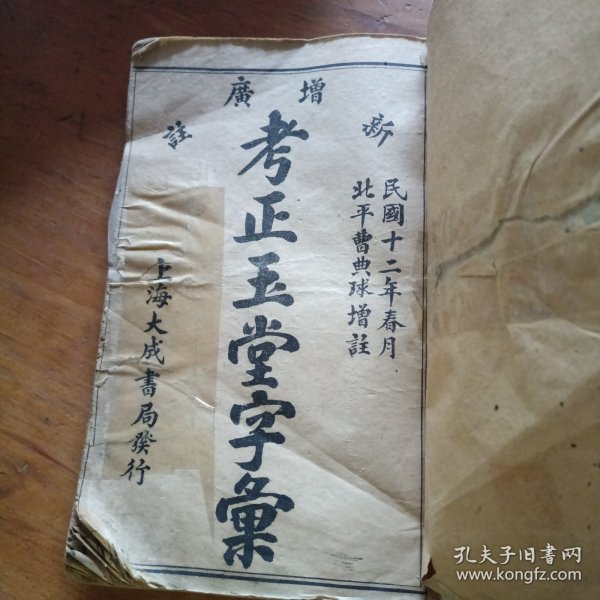 新增廣註
民國十二年春月
北平曹典球增註
考正玉堂字彙
上海大成書局發行
孔夫子旧书网
www.kongfz.com